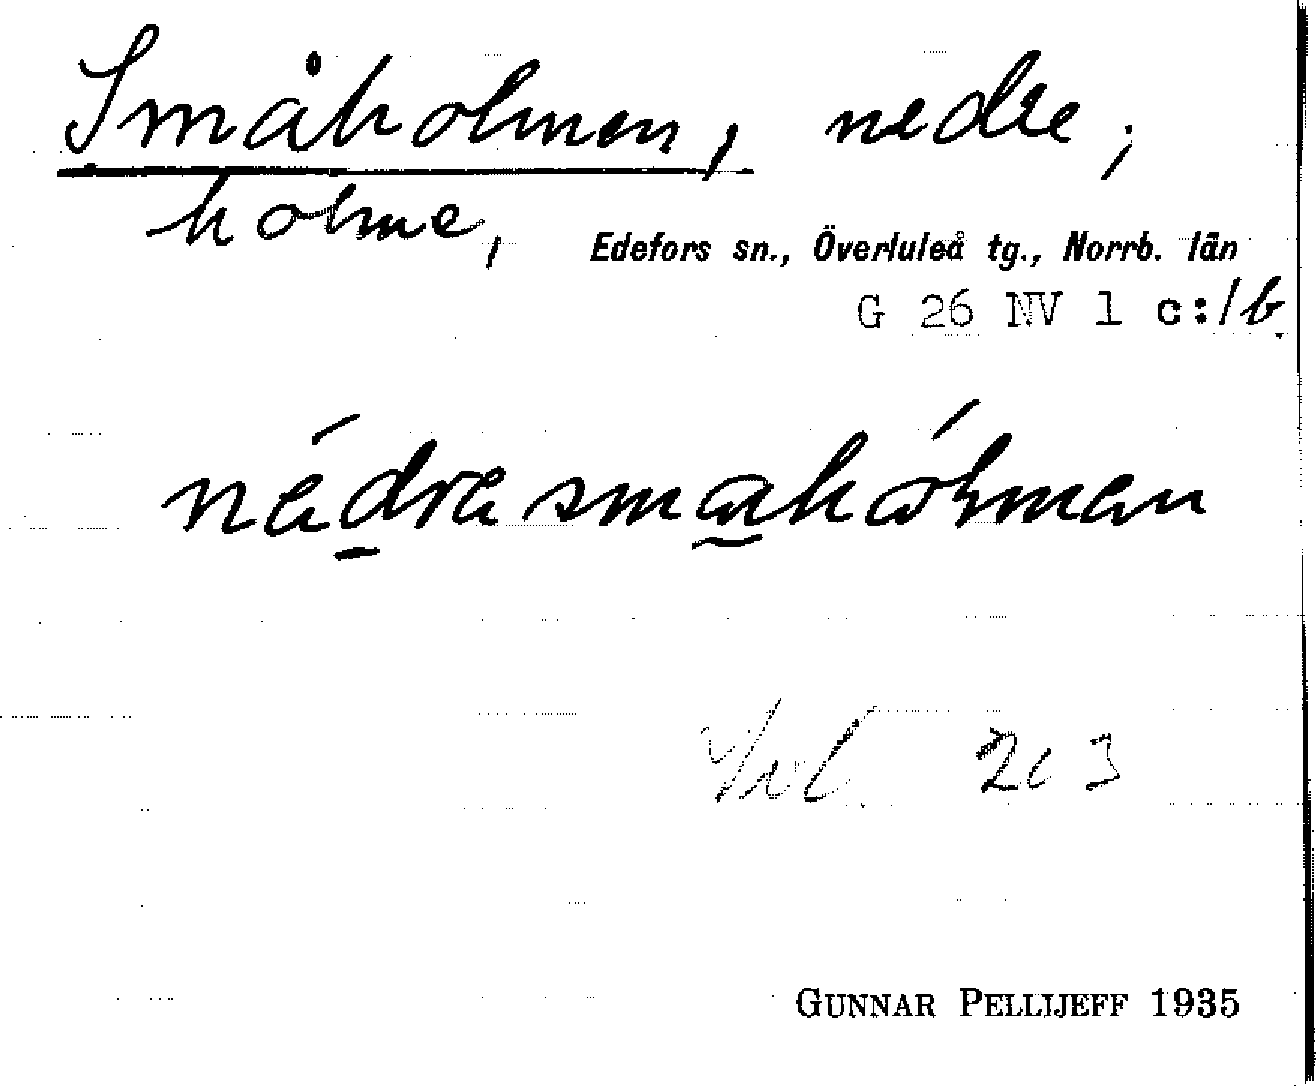 Småholmen, nedre,
holme,
Edefors sn., Överluleå tg., Norrb. län
G 26 NV 1 c:/b
nédrasmaħólman
203
GUNNAR PELLIJEFF 1935